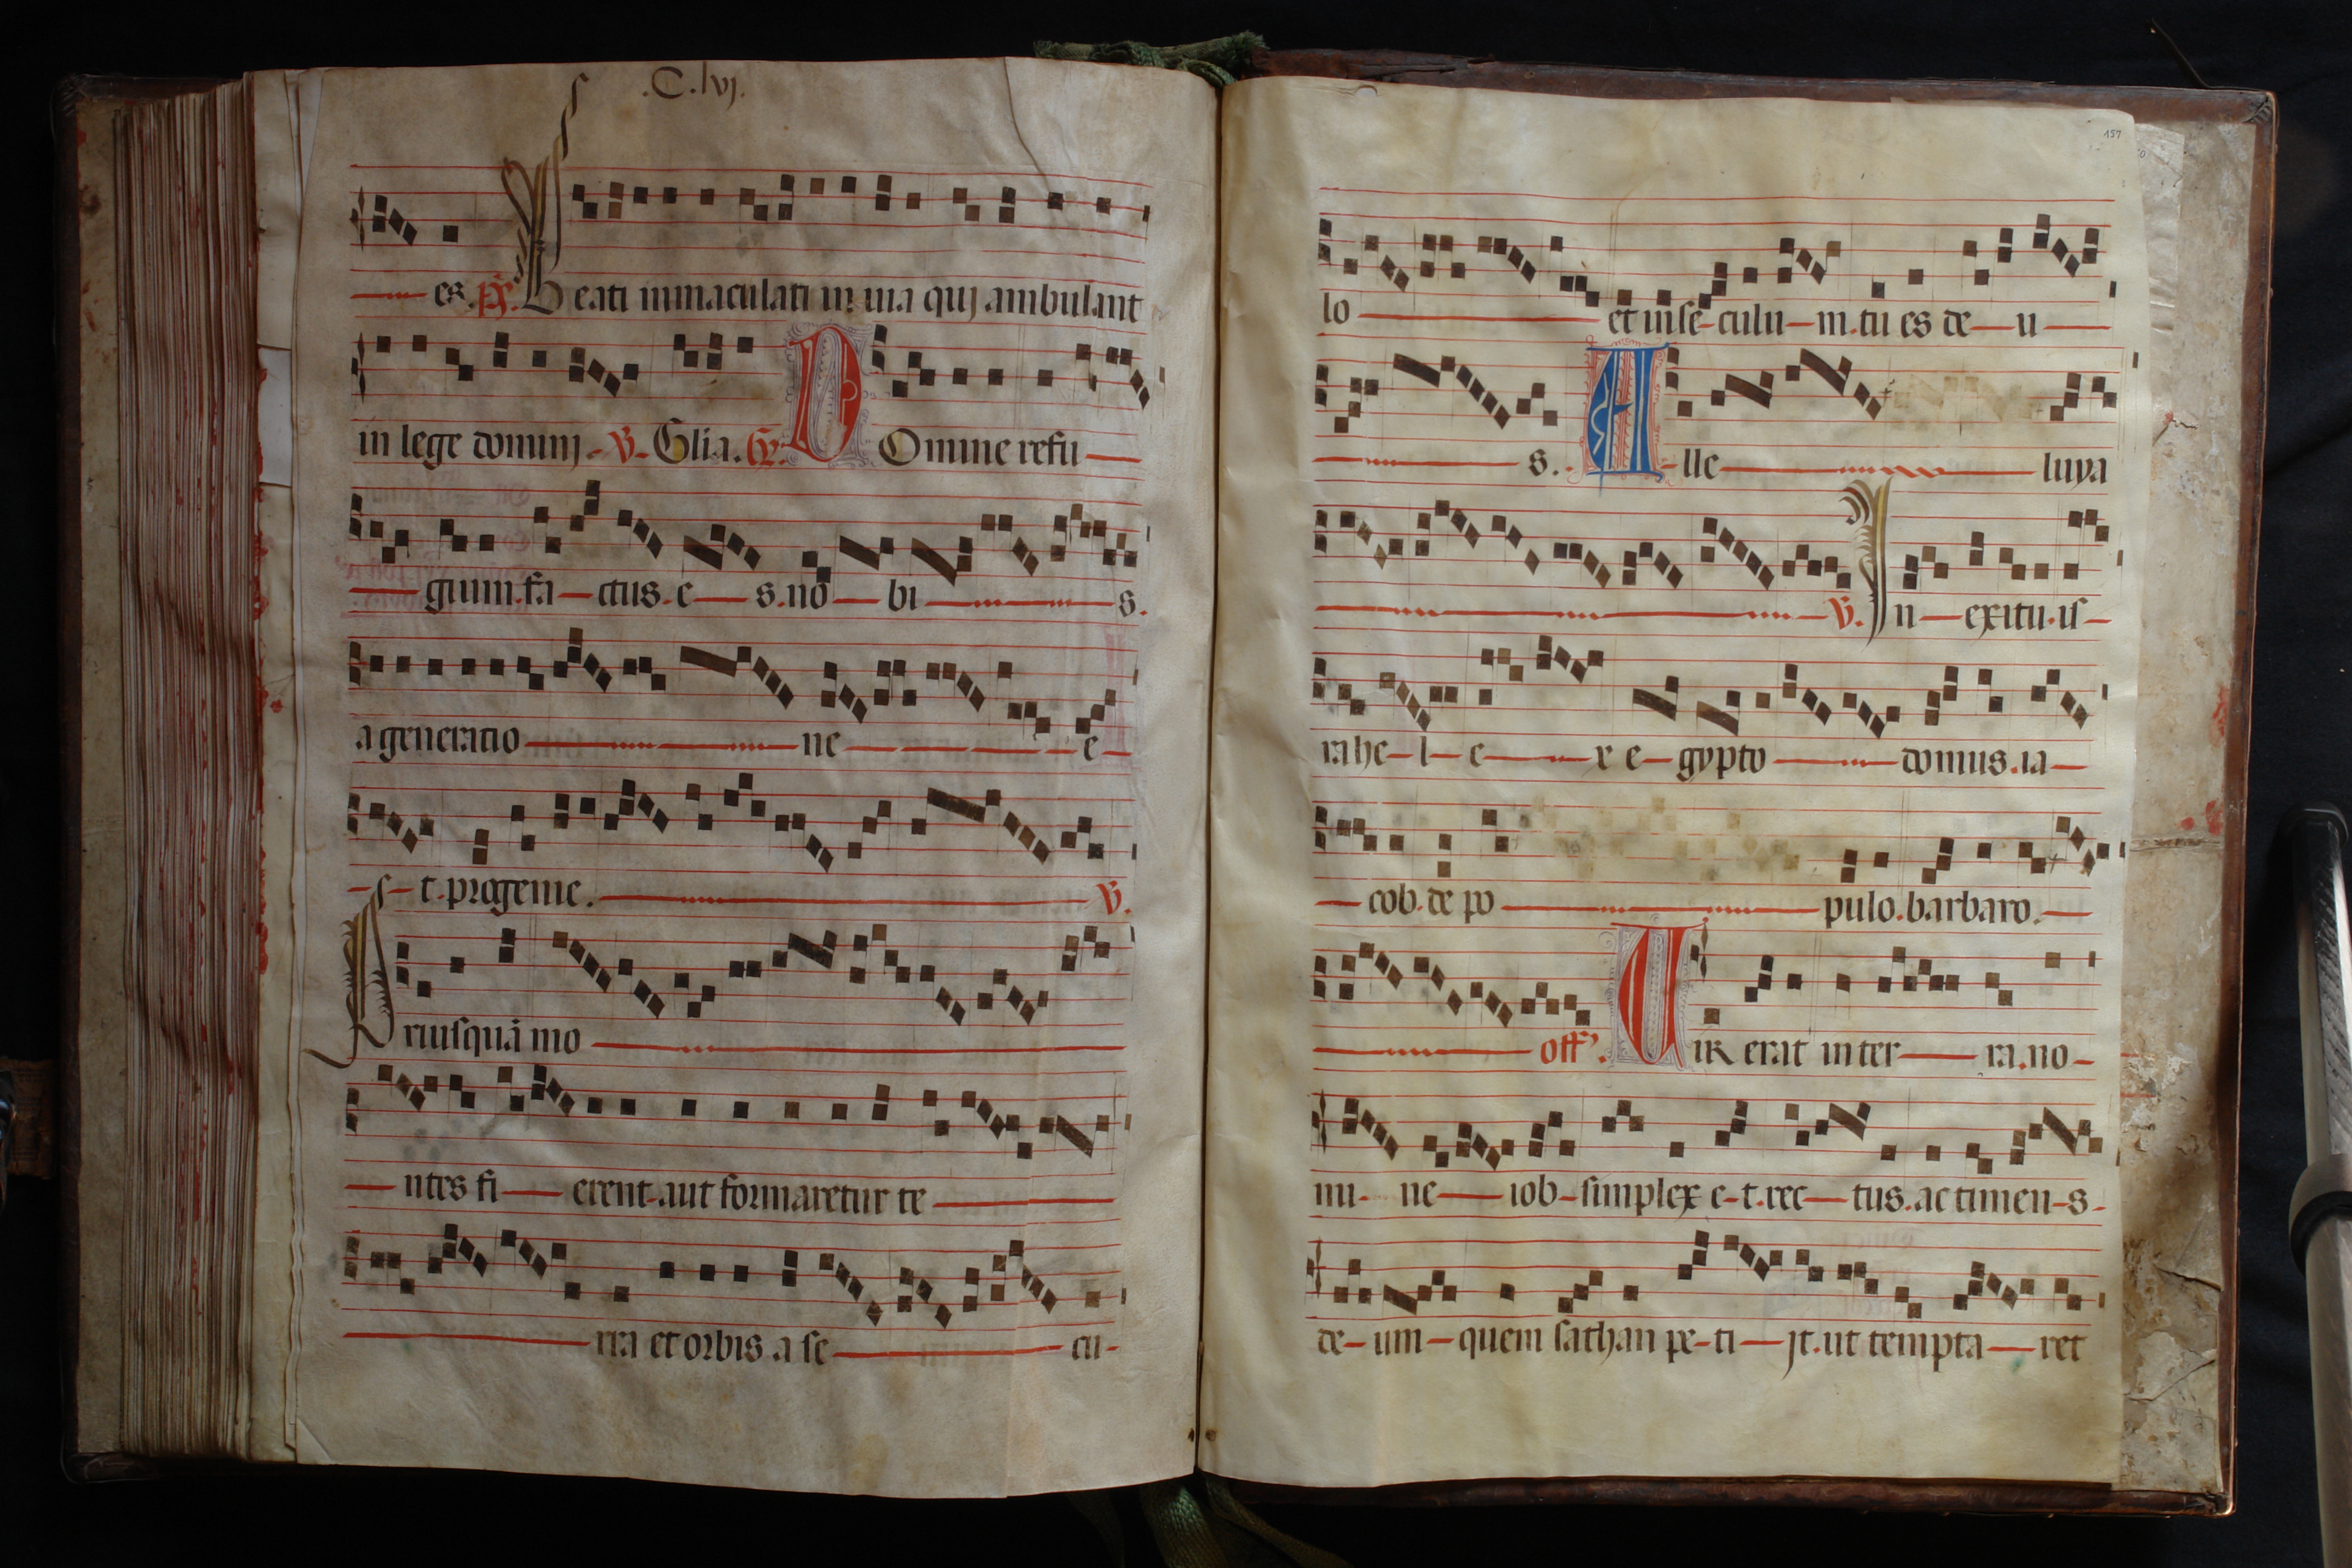 .C.lvj.
es. ps. Beati inmaculati in uia quj ambulant
in lege dominj. V. Glia. Gr. DOmine refu
gium. fa ctus. e s. no bi s.
a generatio ne e
s t. progenie. V.
Priusquã mo
ntes fi erent. aut formaretur te
rra et orbis. a se cu
157
lo et in se culu m. tu es de u
s. Alle luya
V. In exitu. is
rahe l e x e gypto domus. ia
cob. de po pulo. barbaro.
off. Uir erat in ter ra. no
mi ne iob simplex e t. rec tus. ac timen s
de um quem sathan pe ti jt. ut tempta ret